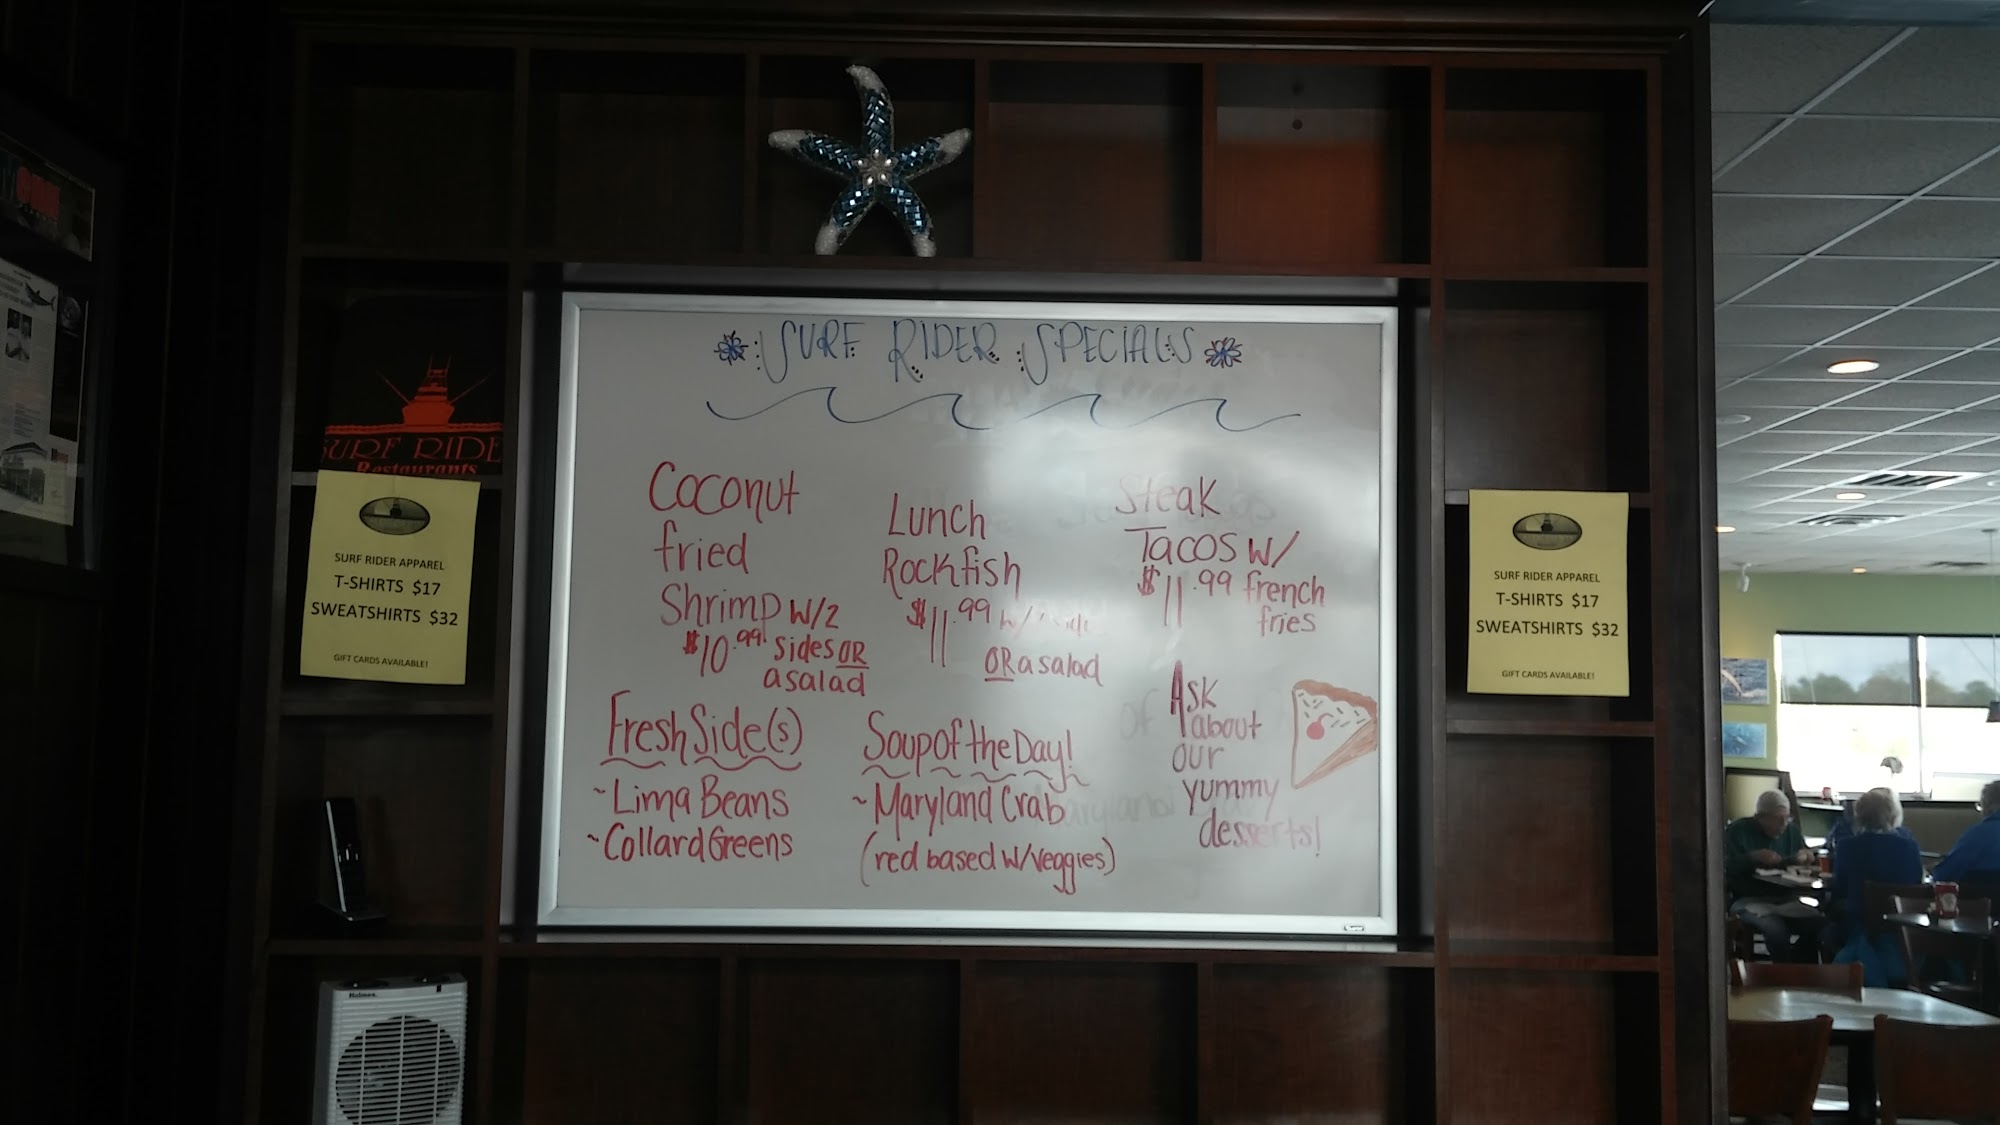 SURF RIDER SPECIALS
Coconut
fried
Shrimp w/2
$10.99 sides OR
a salad
Lunch
Rockfish
$11.99 w/
OR a salad
Steak
Tacos w/
$11.99 french
fries
Fresh Side(s)
~Lima Beans
~Collard Greens
Soup of the Day!
~Maryland Crab
(red based w/veggies)
Ask
about
our
yummy
desserts!
SURF RIDE
Restaurants
SURF RIDER APPAREL
T-SHIRTS $17
SWEATSHIRTS $32
GIFT CARDS AVAILABLE!
SURF RIDER APPAREL
T-SHIRTS $17
SWEATSHIRTS $32
GIFT CARDS AVAILABLE!
Holmes